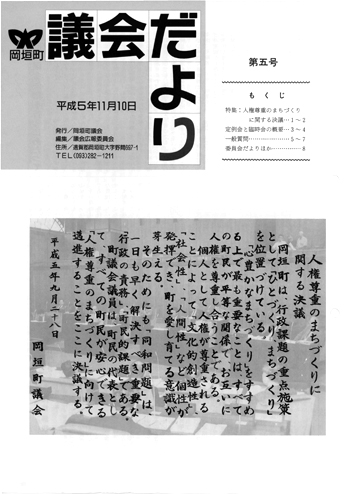 岡垣町
議会だより
平成5年11月10日
発行/岡垣町議会
編集/議会広報委員会
住所/遠賀郡岡垣町大字野間697-1
TEL(093)282-1211
第五号
もくじ
特集:人権尊重のまちづくり
に関する決議…1~2
定例会と臨時会の概要…3~4
一般質問…………5~7
委員会だよりほか…………8
人権尊重のまちづくりに
関する決議
岡垣町は、行政課題の重点施策
として「ひとづくり、まちづくり」
を位置づけている。
「心豊かなまちづくり」をすすめ
る上で最も重要なことは、すべて
の町民が平等な関係で、お互いに
人権を尊重し合うことである。
個人として人権が尊重される
ことによって、文化的創造性、
「社会性」、「人間性」など個性が
発揮でき、町を愛し育てる意識が
芽生える。
そのためにも「同和問題」は、
一日も早く解決すべき重要な
「行政の責務」「町民的課題」である。
町議会議員は、町民の代表とし
て、すべての町民が安心できる
「人権尊重のまちづくり」に向けて
邁進することをここに決議する。
平成五年九月二十八日
岡垣町議会